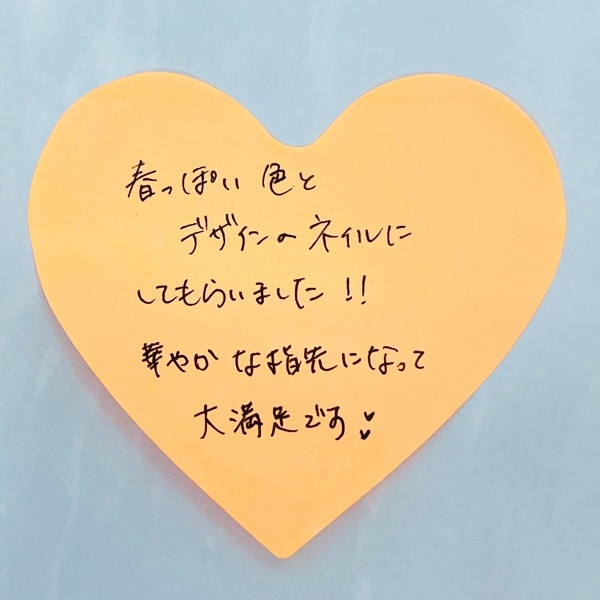 春っぽい色と
デザインのネイルに
してもらいました!!
華やかな指先になって
大満足です♥♥